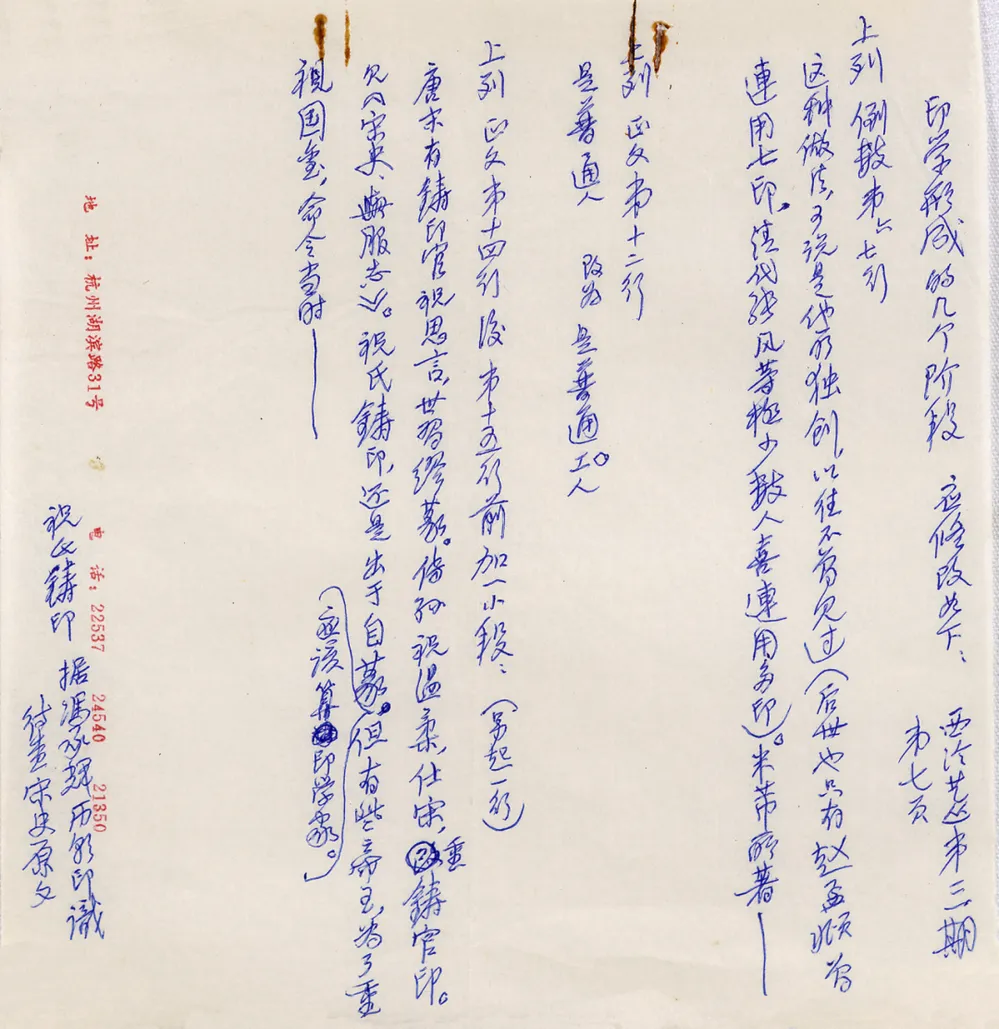 印学形成的几个阶段 应修改如下： 西泠艺丛第三期
第七页
上列 倒数第六七行
这种做法，可说是他所独创，以往不曾见过（后世也只有赵孟頫曾
連用七印，清代张风等極少数人喜連用多印）。米芾所著——
上列 正文第十二行
是普通人 改为 是普通工人
上列 正文第十四行後 第十五行前 加一小段：（另起一行）
唐末有鋳印官祝思言，世習繆篆。倄孙祝温柔，仕宋，重鋳官印。
见《宋史、輿服志》。祝氏鋳印，还是出于自篆。但有些帝王，为了重
（应该算印学家。）
視国玺，命令当时——
地 址：杭州湖滨路31号 电 话：22537 24540 21350
祝氏鋳印 据馮承輝历朝印識
待查宋史原文